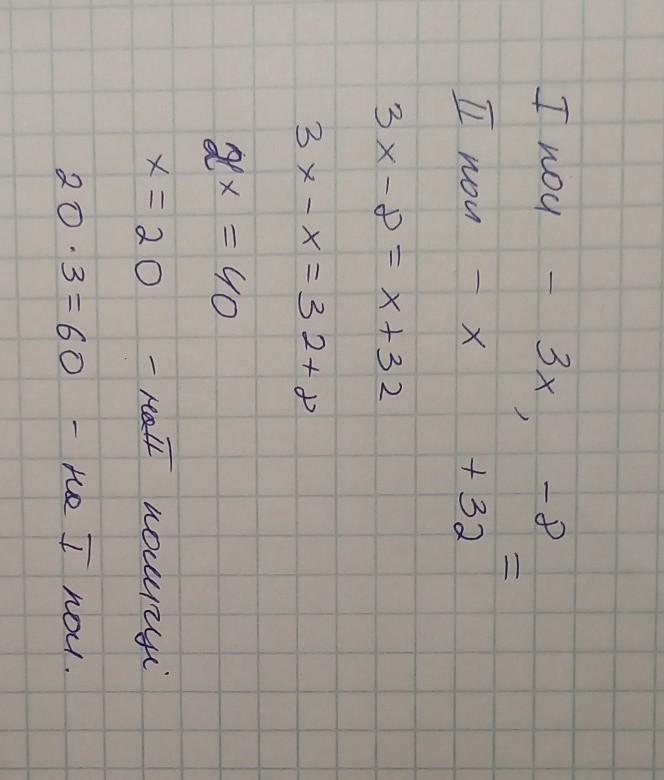 I пол - 3x, -8
=
II пол - x +32
3x-8=x+32
3x-x=32+8
2x=40
x=20 - на II полиці
20·3=60 - на I пол.